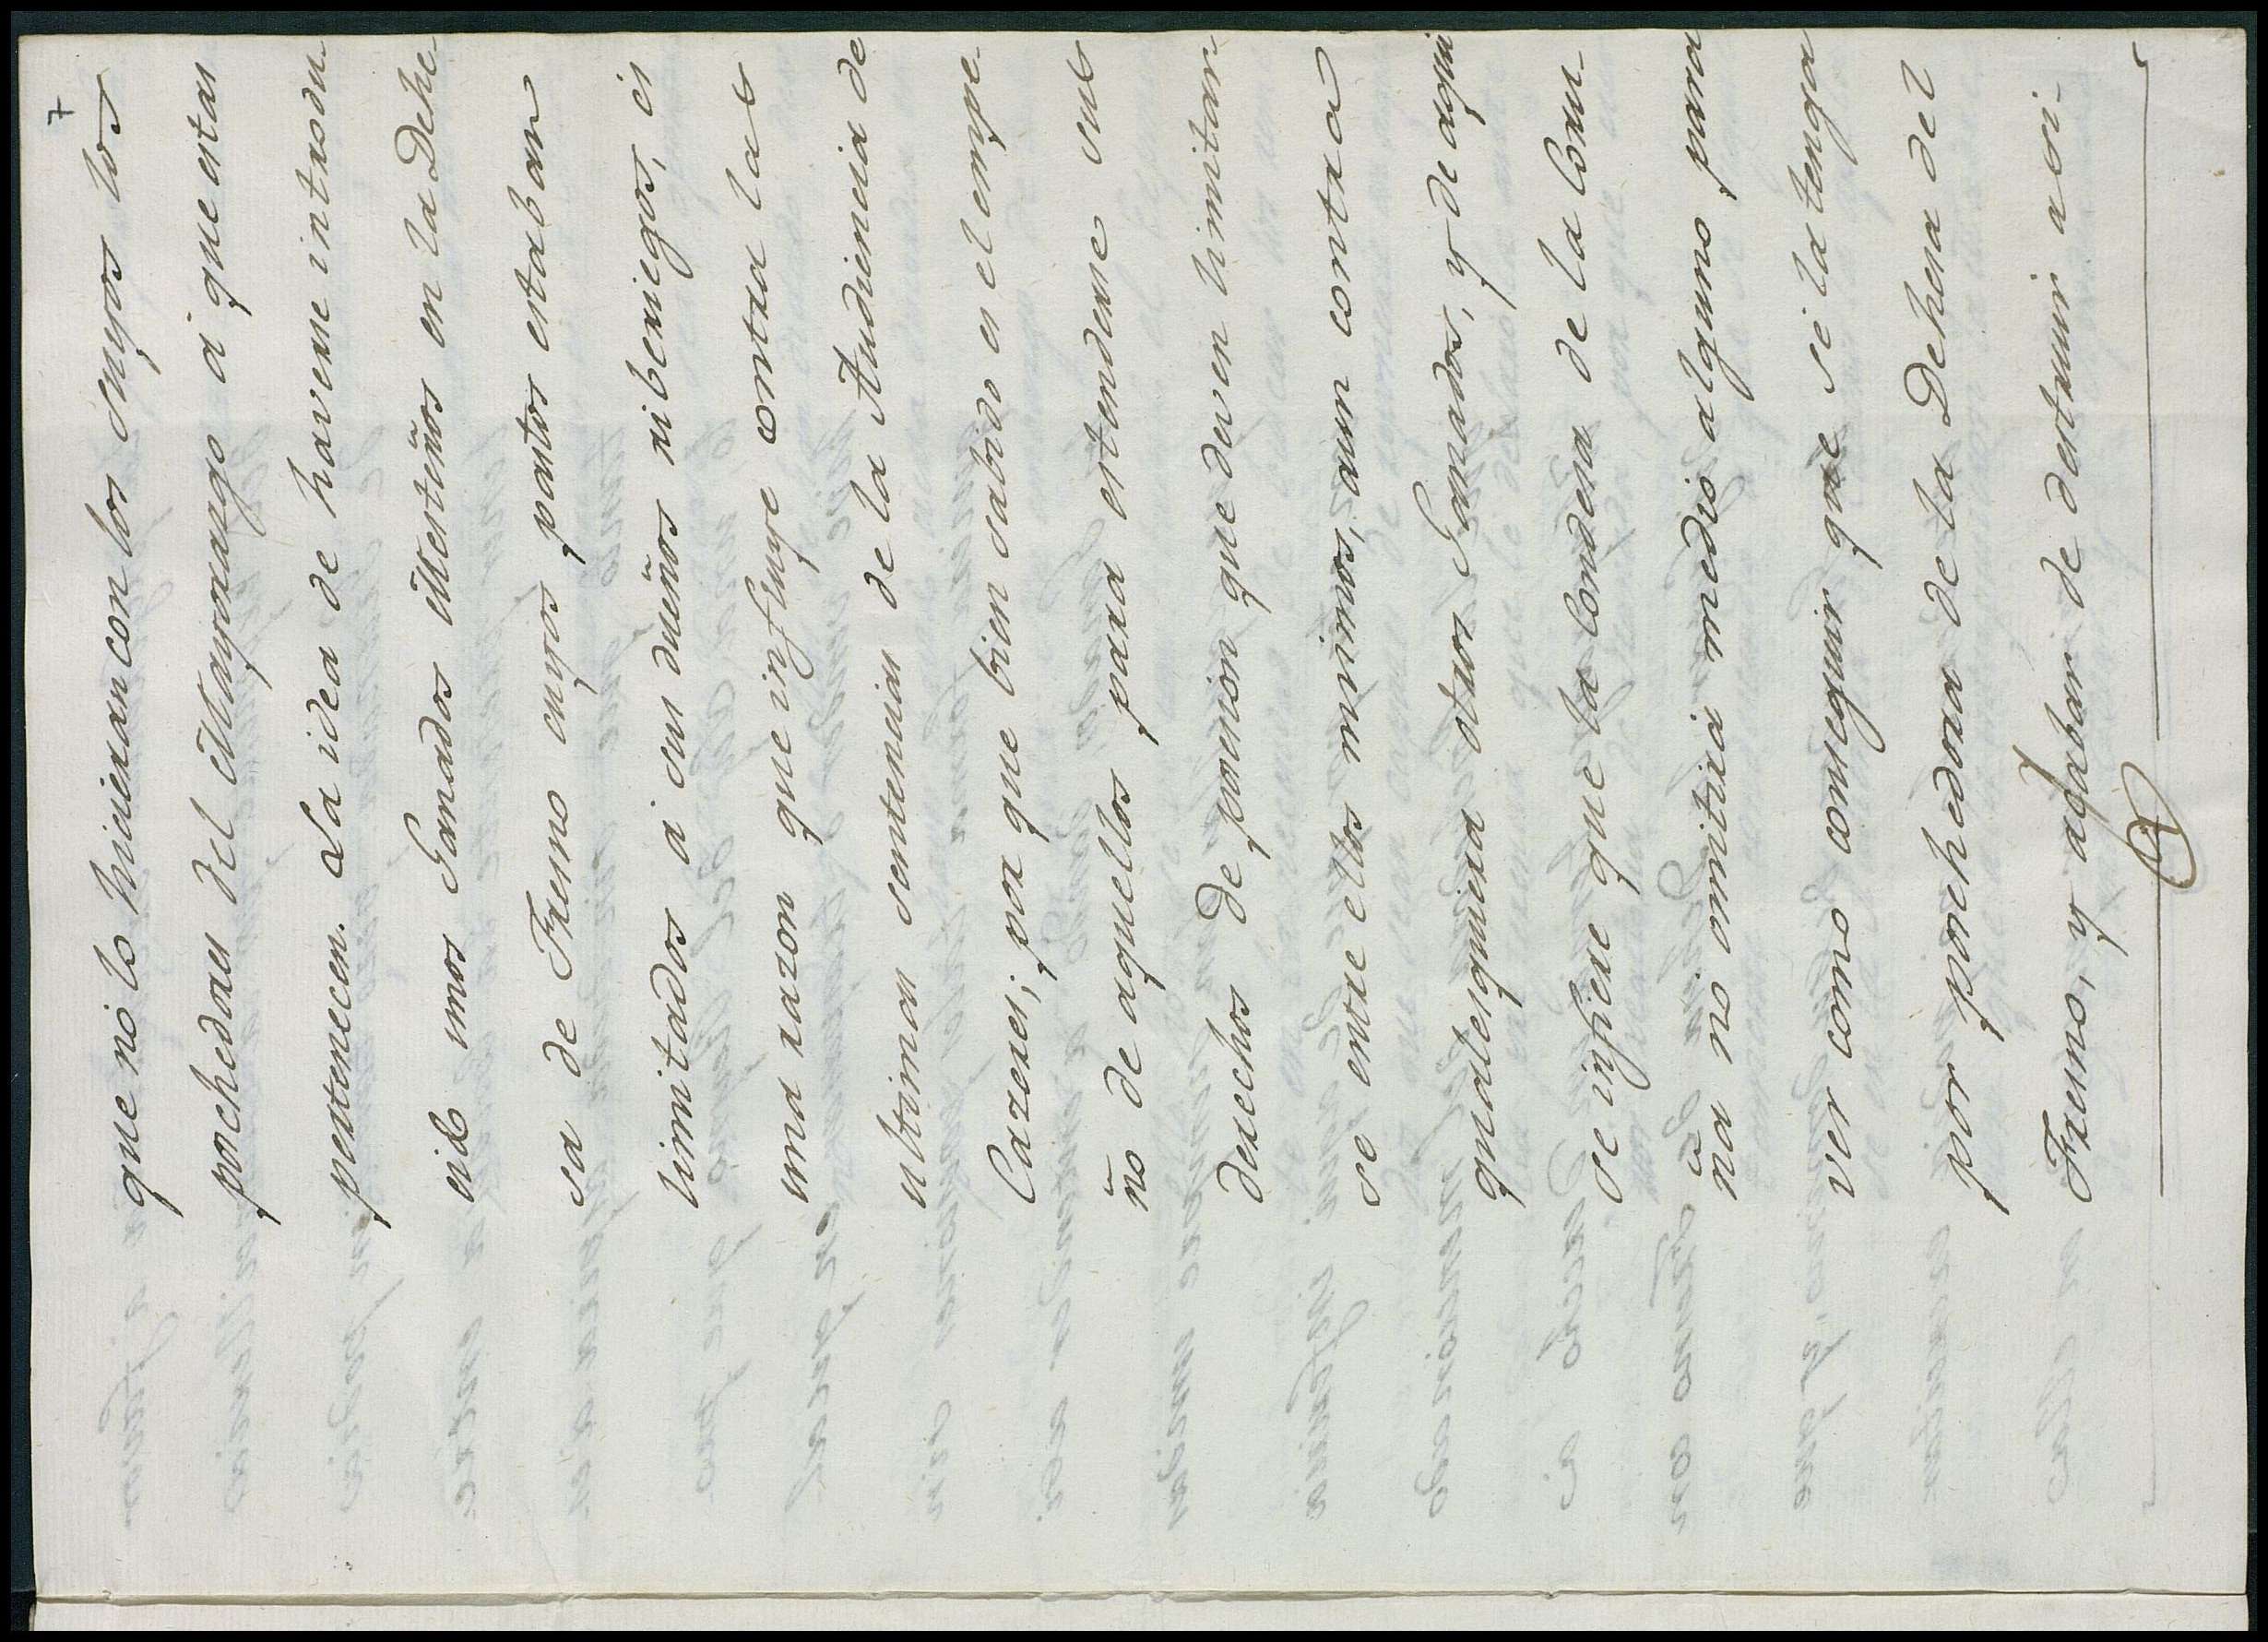 7
que nò lo hicieran con los suyos los
pochedores del Mayorazgo à que estas
pertenecen. La idea de haverse introdu-
cido unos Ganados Mesteños en la Dehe-
sa de Fresno cuyos pastos estaban
limitados à sus dueños riberiegos, es
una razon que influye contra las
ultimas sentencias de la Audiencia de
Cazeres; por que bien sabido es el empe-
ño de aquellos para estenderse sus
derechos de posesion que deven limitar-
se entre ellos mismos, aun contra
qualesquiera otros Ganados, y de aqui
se infiere que la Condesa de la Coru-
ña nò omitirà medio alguno para
ver como conseguir que sè la tenga
por pochedora de la Dehesa del
Fresno, y acabar de destruir a si-